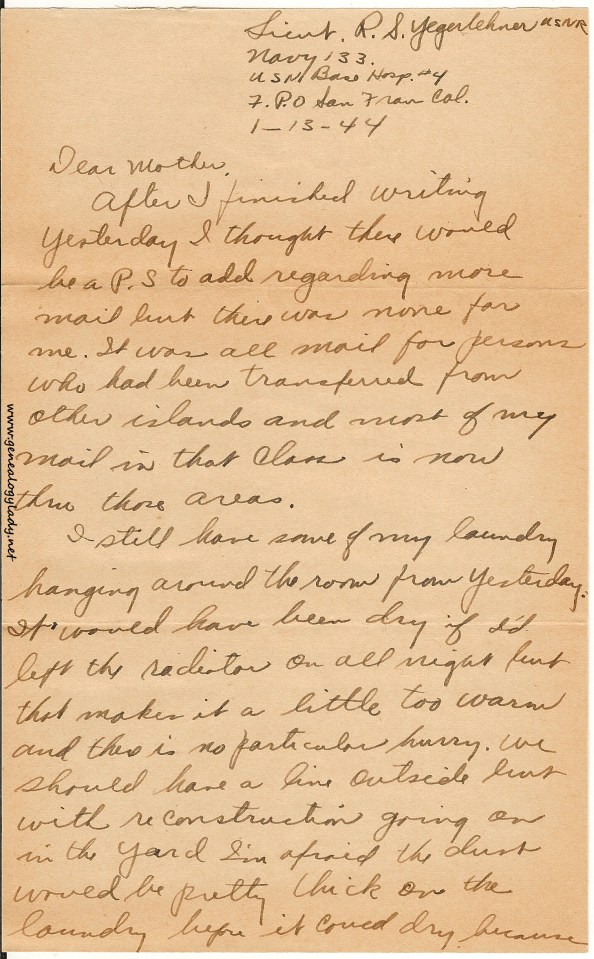 Lieut. R. S. Yegerlehner USNR
Navy 133.
USN Base Hosp. #4
F.P.O San Fran Cal.
1-13-44
Dear Mother,
After I finished writing
yesterday I thought there would
be a P.S to add regarding more
mail but there was none for
me. It was all mail for persons
who had been transferred from
other islands and most of my
mail in that class is now
thru those areas.
I still have some of my laundry
hanging around the room from yesterday.
It would have been dry if I'd
left the radiator on all night but
that makes it a little too warm
and there is no particular hurry. We
should have a line outside but
with reconstruction going on
in the yard I'm afraid the dust
would be pretty thick on the
laundry before it could dry because
www.genealogylady.net